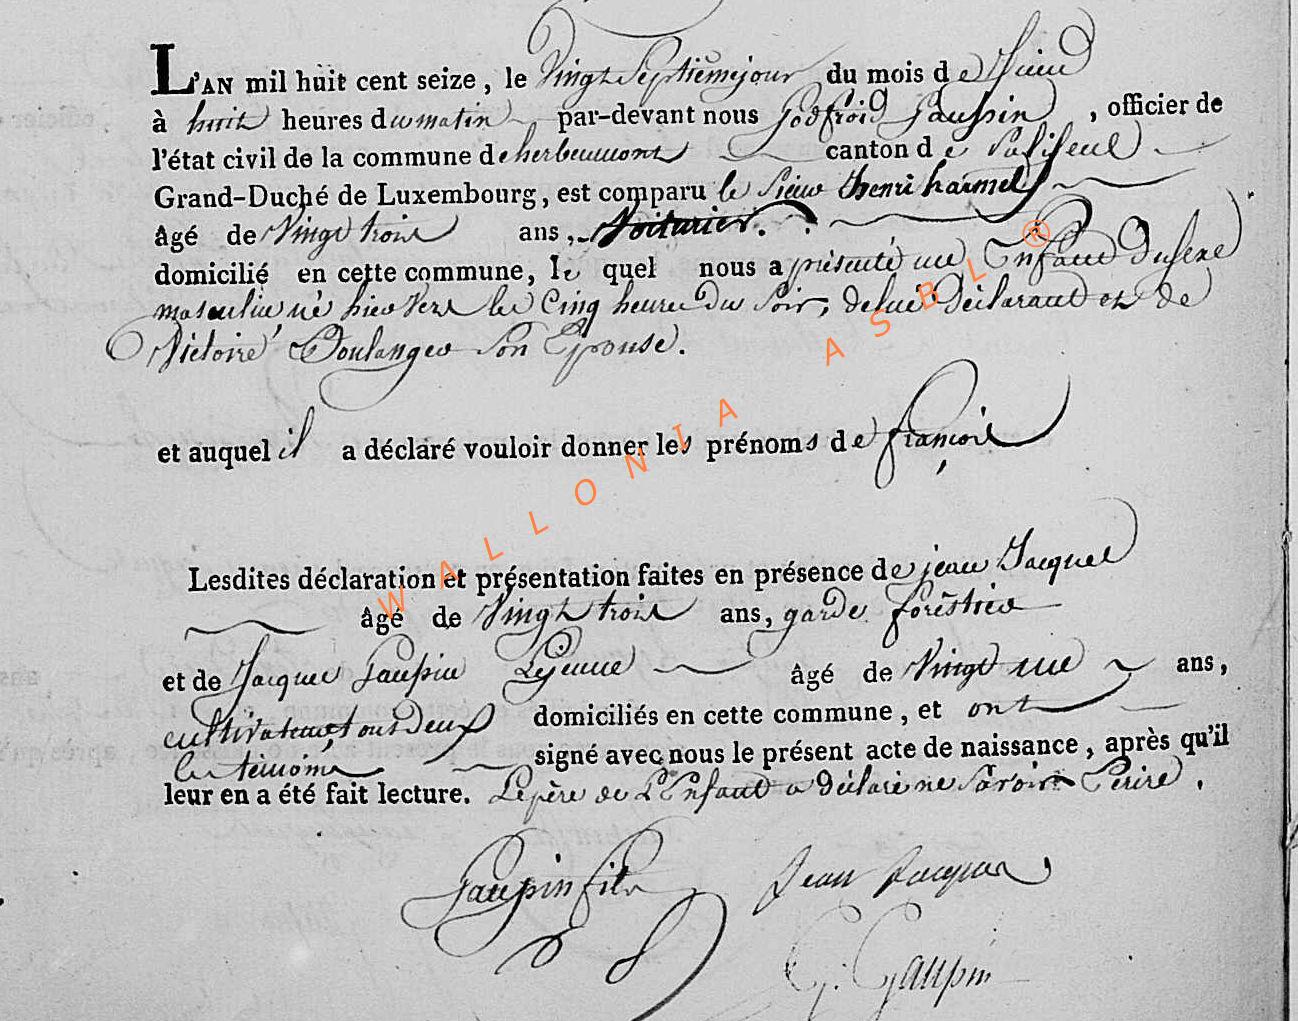 L'AN mil huit cent seize, le Vingt Septiemejour du mois de Juin
à huit heures du matin par-devant nous Godfroid Gaupin, officier de
l'état civil de la commune de herbeumont canton de Paliseul
Grand-Duché de Luxembourg, est comparu le Sieur henri harmel
âgé de Vingt trois ans, Voiturier.
domicilié en cette commune, le quel nous a présenté un Enfant du sexe
masculin né hier vers les Cinq heures du Soir, de lui Déclarant et de
Victoire Boulanger Son Epouse.
et auquel il a déclaré vouloir donner les prénoms de françois
Lesdites déclaration et présentation faites en présence de jean Jacques
âgé de Vingt trois ans, garde forêstier
et de Jacques Gaupin Lejeune âgé de Vingt un ans,
cultivateur, tous Deux domiciliés en cette commune, et ont
les témoins signé avec nous le présent acte de naissance, après qu'il
leur en a été fait lecture. Le père de L'Enfant a déclaré ne Savoir Ecrire.
Gaupin fils Jean Jacques
G. Gaupin
WALLONIA ASBL ®